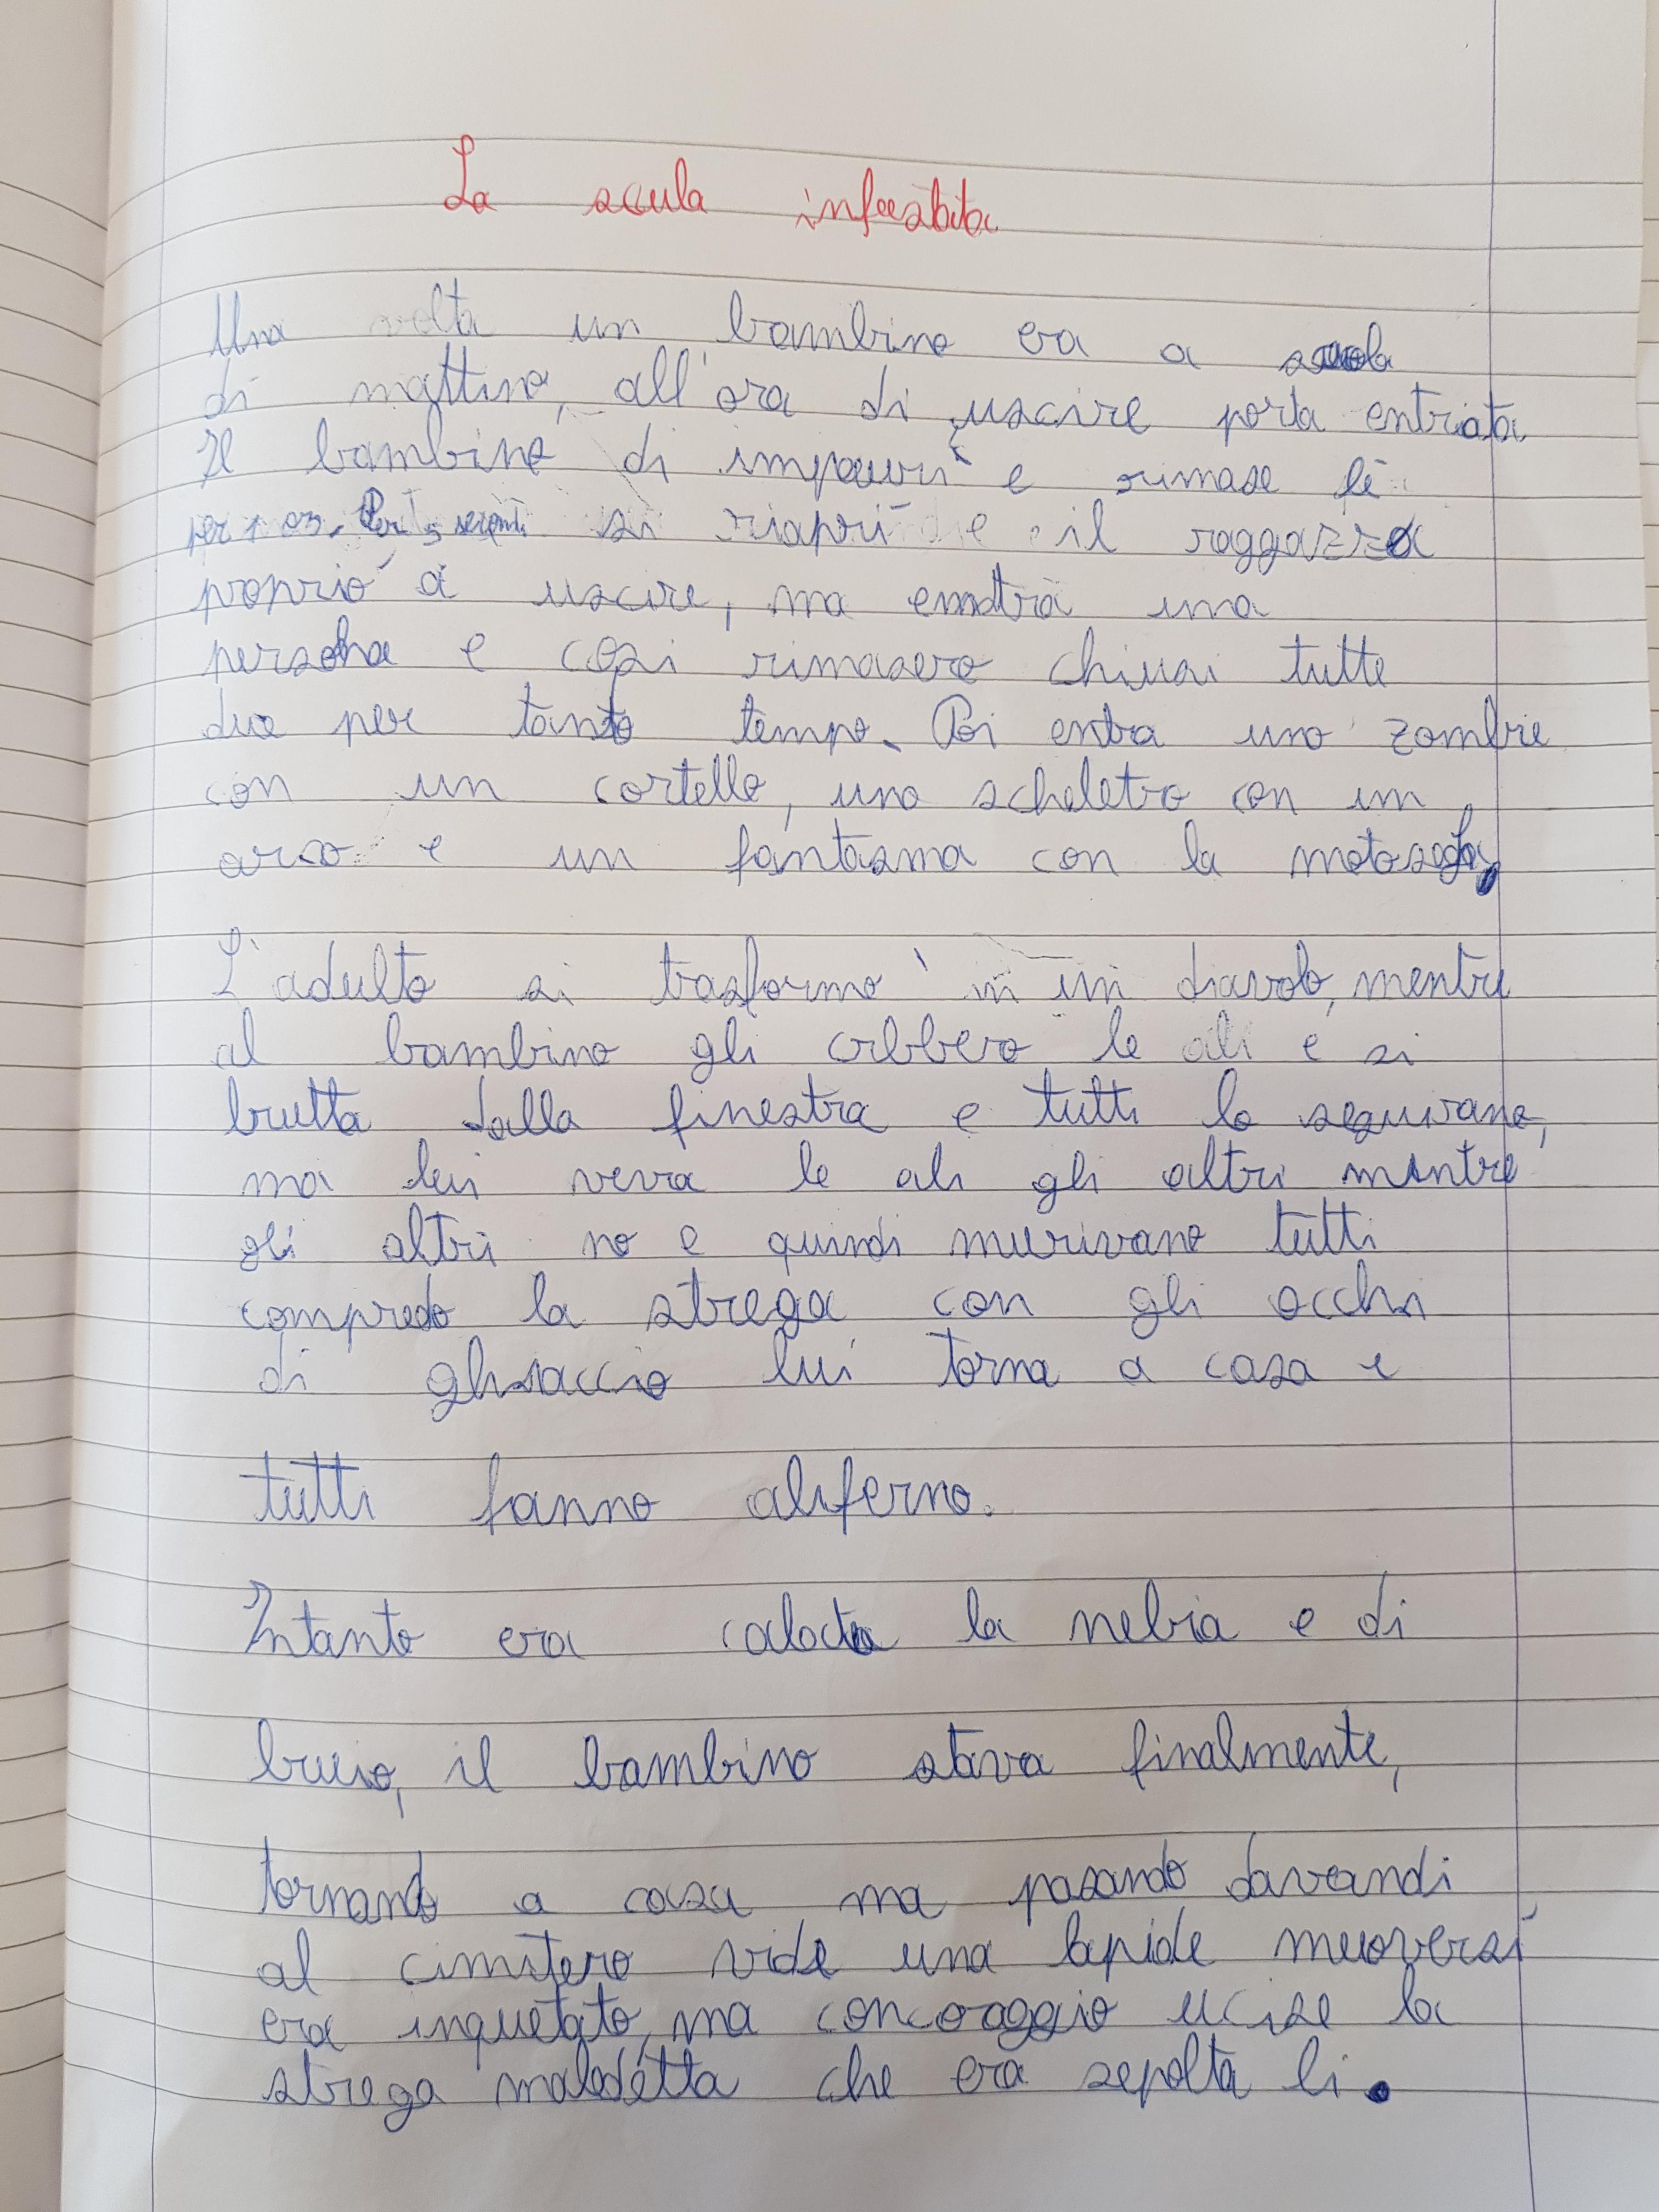 La scula infestata
Una volta un bambino era a scuola
di mattino, all'ora di uscire porta entriata
Il bambino di impaurì e rimase lì
per 1 ora. Per 5 secondi si riaprì e il raggazzo
proprio a uscire, ma entra una
persona e cosi rimasero chiusi tutte
due per tanto tempo. Poi entra uno zombie
con un cortello, uno scheletro con un
arco e un fantasma con la motosega,
L'adulto si trasformo' in un diavolo, mentre
al bambino gli crbbero le ali e si
brutta dalla finestra e tutti lo seguivano,
ma lui veva le ali gli altri mentre
gli altri no e quindi murivano tutti
compredo la strega con gli occhi
di ghiaccio lui torna a casa e
tutti fanno aliferno.
Intanto era calata la nebia e di
buio, il bambino stava finalmente,
tornando a casa ma pasando davandi
al cimitero vide una lapide muoversi
era inquetato, ma concoraggio ucise la
strega maledetta che era sepolta li.